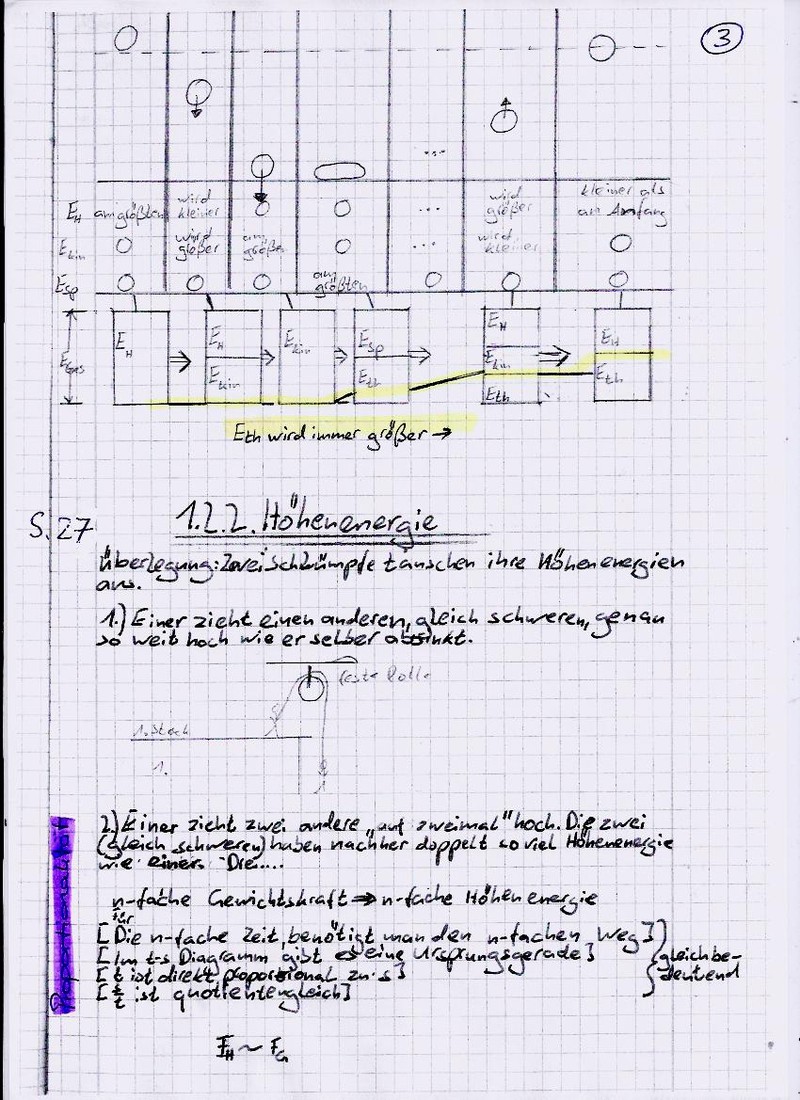 3
E_H am größten wird kleiner O O ... wird größer kleiner als am Anfang
E_kin O wird größer am größten O ... wird kleiner O
E_sp O O O am größten O O O
E_Ges E_H E_H E_kin E_kin E_sp E_th E_H E_kin E_th E_H E_th
Eth wird immer größer →
S. 27
1.2.2. Höhenenergie
Überlegung: Zwei Schlümpfe tauschen ihre Höhenenergien
aus.
1.) Einer zieht einen anderen, gleich schweren, genau
so weit hoch wie er selber absinkt.
feste Rolle
1. Stock
1.
1
Proportionalität
2.) Einer zieht zwei andere „auf zweimal" hoch. Die zwei
(gleich schweren) haben nachher doppelt so viel Höhenenergie
wie einer. Die....
n-fache Gewichtskraft ⇒ n-fache Höhenenergie
für
[Die n-fache Zeit, benötigt man den n-fachen Weg]
[Im t-s Diagramm gibt es eine Ursprungsgerade]
[t ist direkt proportional zu s]
[s/t ist quotientengleich]
gleichbe-
deutend
E_H ~ F_G